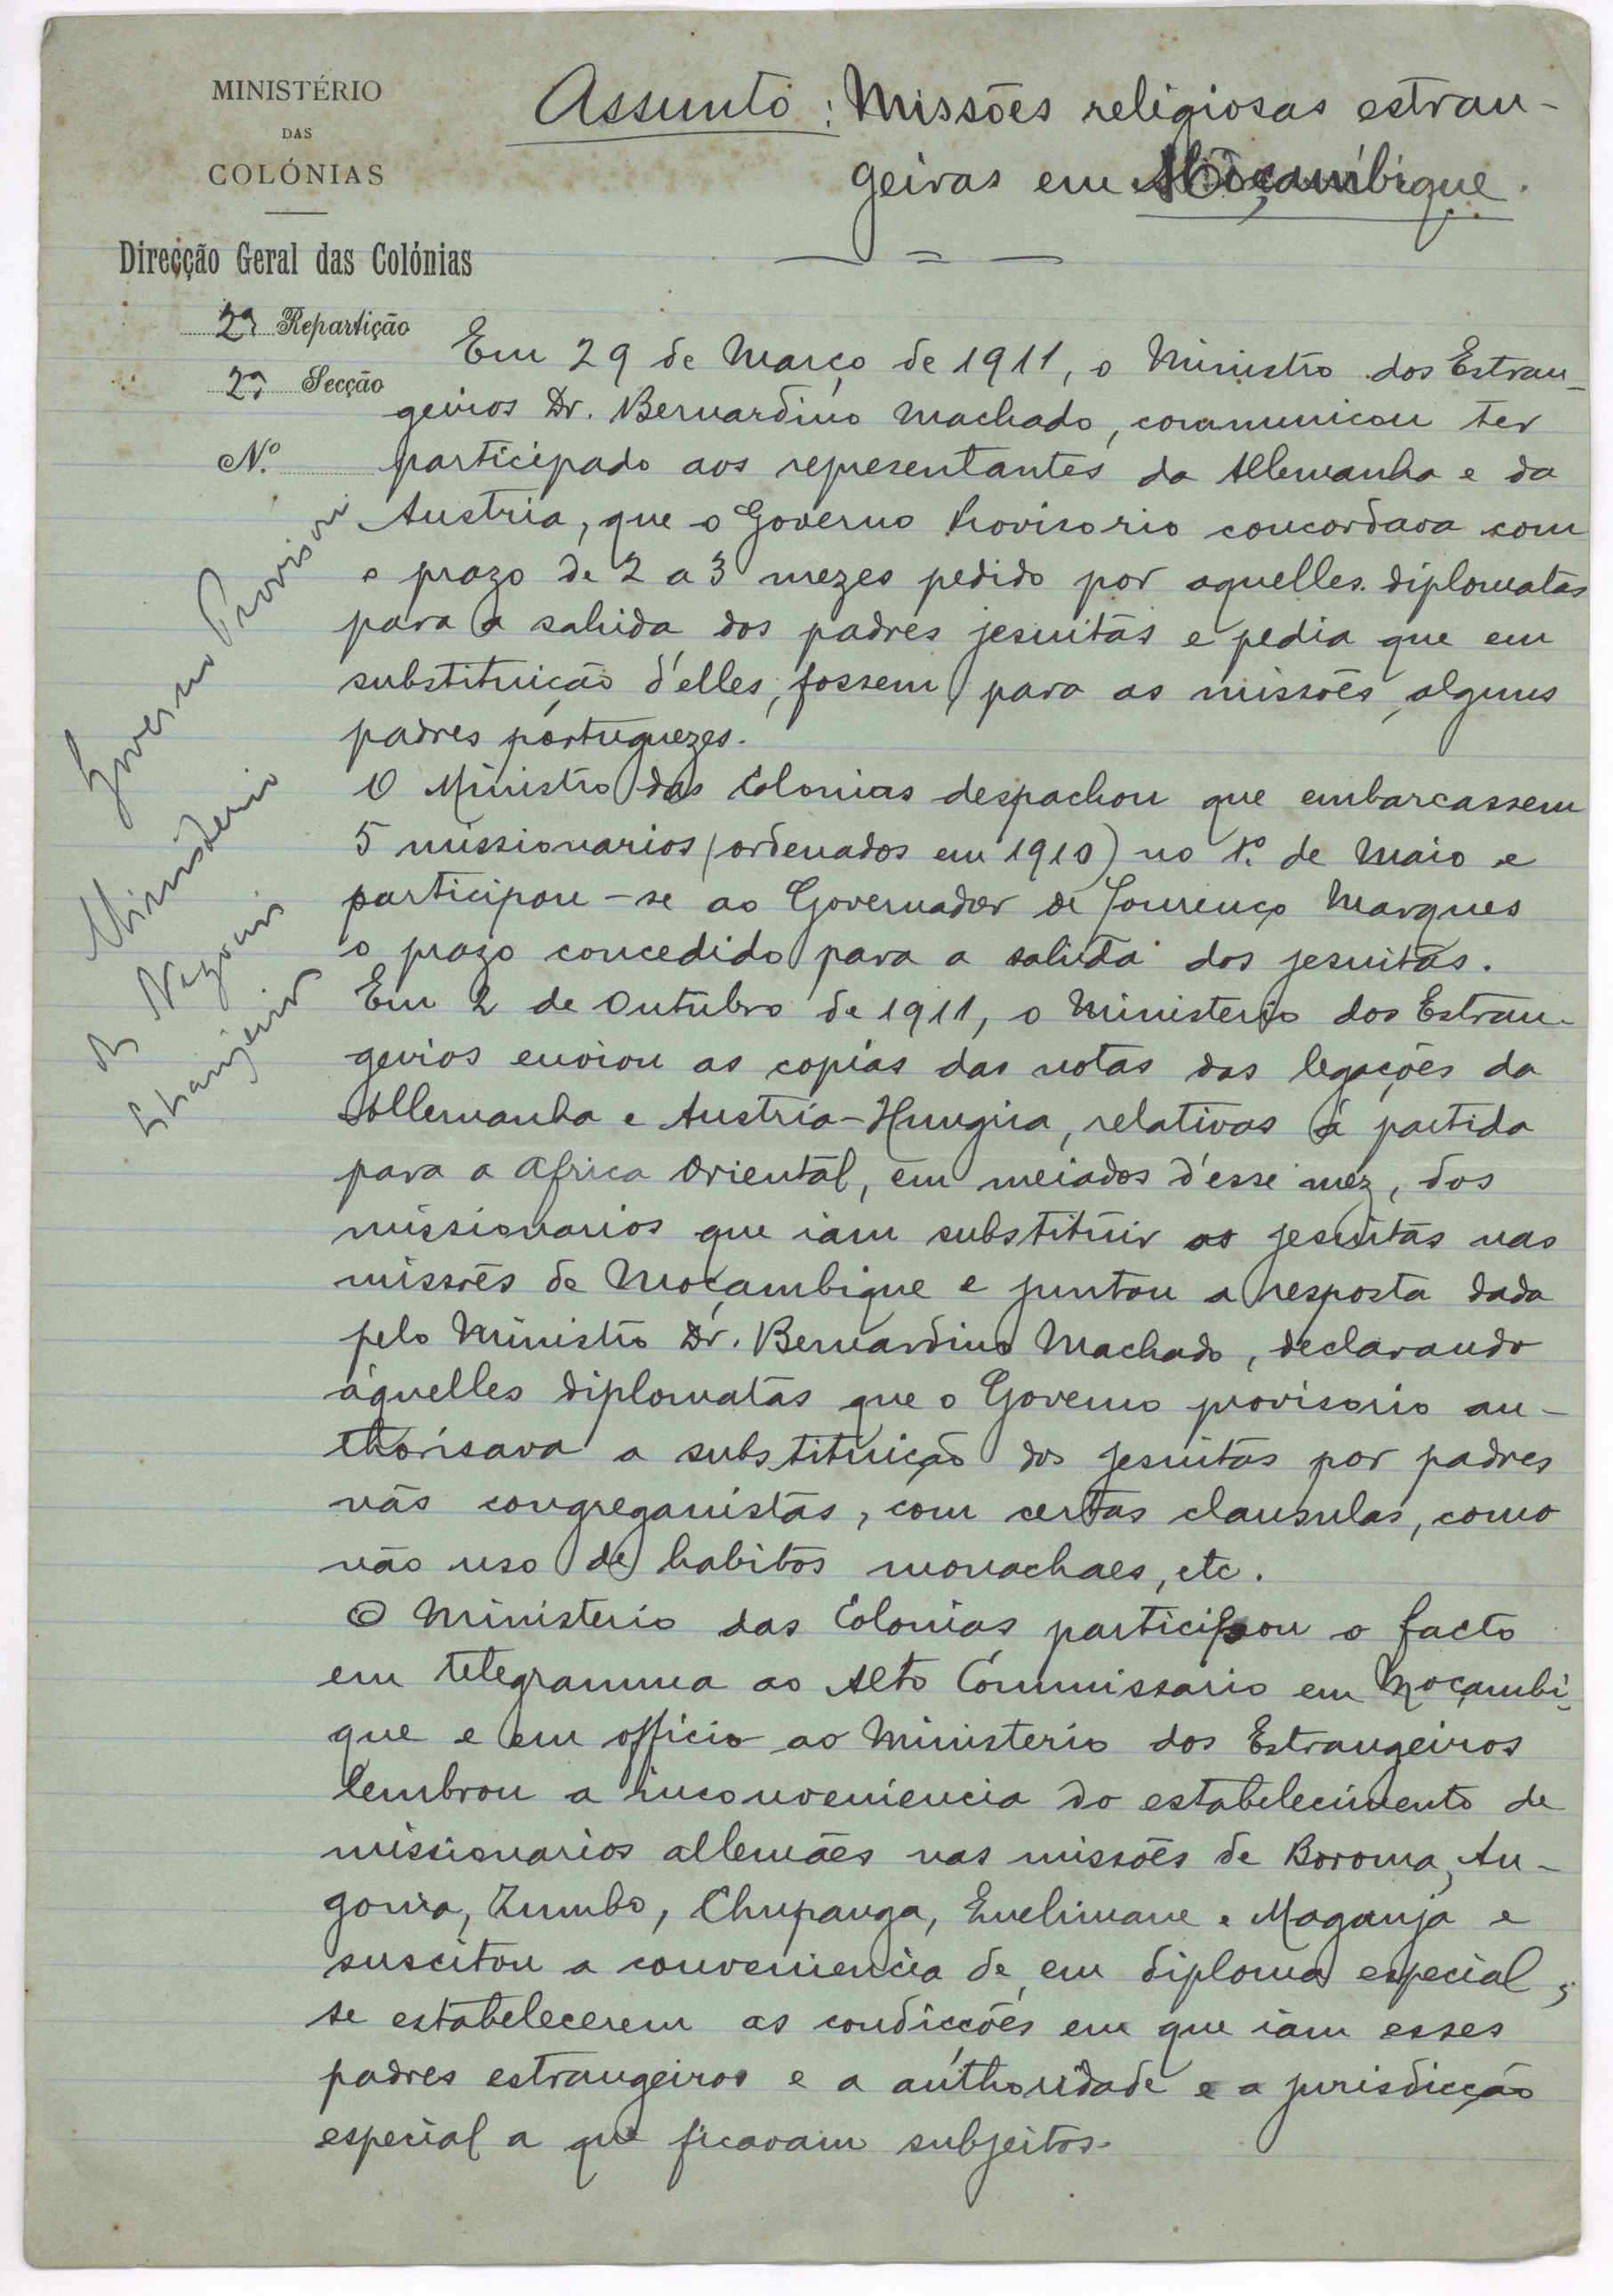 MINISTÉRIO
DAS
COLÓNIAS
Direcção Geral das Colónias
2ª Repartição
2ª Secção
N.º
Assunto: Missões religiosas estran-
geiras em Moçambique.
Em 29 de Março de 1911, o Ministro dos Estran-
geiros Dr. Bernardino Machado, communicou ter
participado aos representantes da Allemanha e da
Austria, que o Governo Provisorio concordava com
o prazo de 2 a 3 mezes pedido por aquelles diplomatas
para a sahida dos padres jesuitas e pedia que em
substituição d'elles, fossem para as missões, alguns
padres portuguezes.
O Ministro das Colonias despachou que embarcassem
5 missionarios (ordenados em 1910) no 1º de Maio e
participou-se ao Governador de Lourenço Marques
o prazo concedido para a sahida dos jesuitas.
Em 2 de Outubro de 1911, o Ministerio dos Estran-
geiros enviou as copias das notas das legações da
Allemanha e Austria-Hungria, relativas á partida
para a Africa Oriental, em meiados d'esse mez, dos
missionarios que iam substituir os jesuitas nas
missões de Moçambique e juntou a resposta dada
pelo Ministro Dr. Bernardino Machado, declarando
áquelles diplomatas que o Governo provisorio au-
thorisava a substituição dos jesuitas por padres
não congreganistas, com certas clausulas, como
não uso de habitos monachaes, etc.
O Ministerio das Colonias participou o facto
em telegramma ao Alto Commissario em Moçambi-
que e em officio ao Ministerio dos Estrangeiros
lembrou a inconveniencia do estabelecimento de
missionarios allemães nas missões de Boroma, An-
gonia, Zumbo, Chupanga, Quelimane e Maganja e
suscitou a conveniencia de, em diploma especial,
se estabelecerem as condicções em que iam esses
padres estrangeiros e a authoridade e a jurisdicção
especial a que ficavam subjeitos.
Governo Provisorio
Ministerio
de Negocios
Estrangeiros